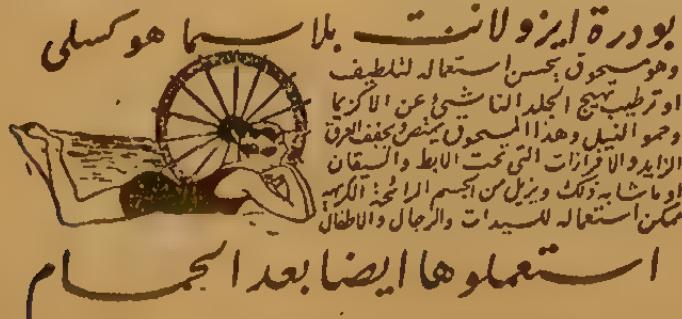 بودرة ايزولانت بلاسما هوكسلى
وهو مسحوق يحسن استعماله لتلطيف
او ترطيب تهيج الجلد الناشئ عن الاكزيما
وحمو النيل وهذا المسحوق يمتص ويجفف العرق
الزايد والافرازات التى تحت الابط والسيقان
او ما شابه ذلك ويزيل من الجسم الرائحة الكريهة
ممكن استعماله للسيدات والرجال والاطفال
استعملوها ايضا بعد الحمام